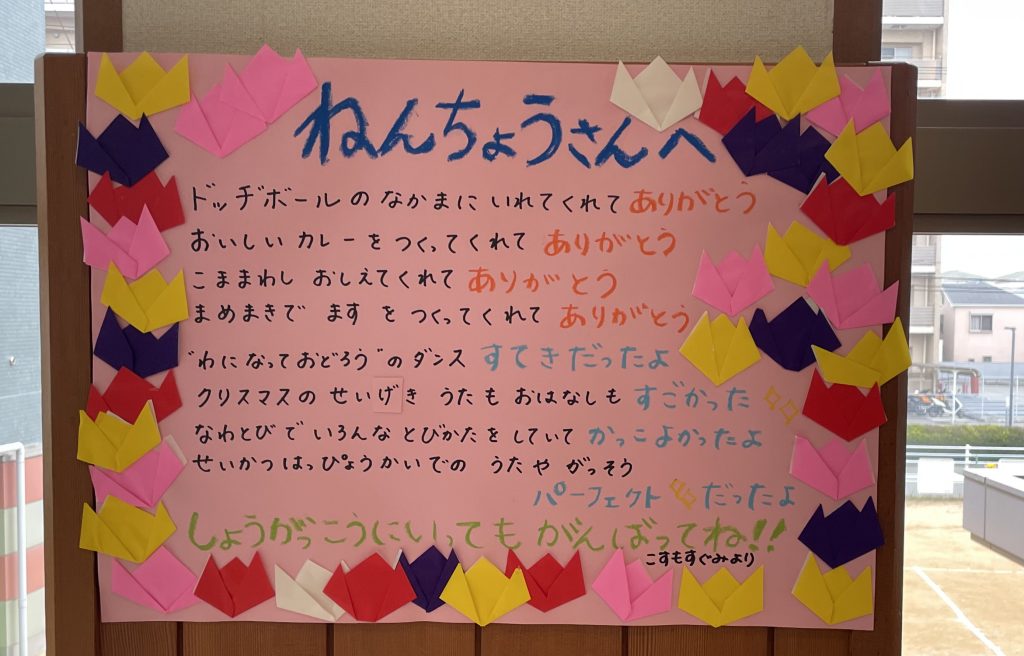 ねんちょうさんへ
ドッヂボールの なかまに いれてくれて ありがとう
おいしい カレーを つくってくれて ありがとう
こままわし おしえてくれて ありがとう
まめまきで ますを つくってくれて ありがとう
"わになっておどろう"のダンス すてきだったよ
クリスマスの せいげき うたも おはなしも すごかった
なわとびで いろんな とびかたを していて かっこよかったよ
せいかつはっぴょうかいでの うたや がっそう
パーフェクト だったよ
しょうがっこうにいっても がんばってね!!
こすもすぐみより